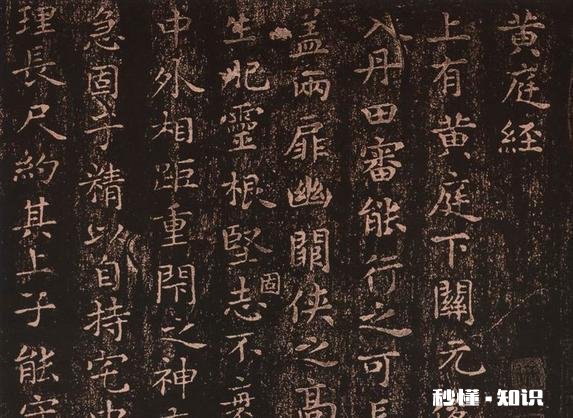 黄庭経
上有黄庭下關元
入丹田審能行之可長
盖兩扉幽闕侠之高
生靈根堅志固不
中外相距重閇之神
急固子精以自持宅
理長尺約其上子能守
秒懂·知识